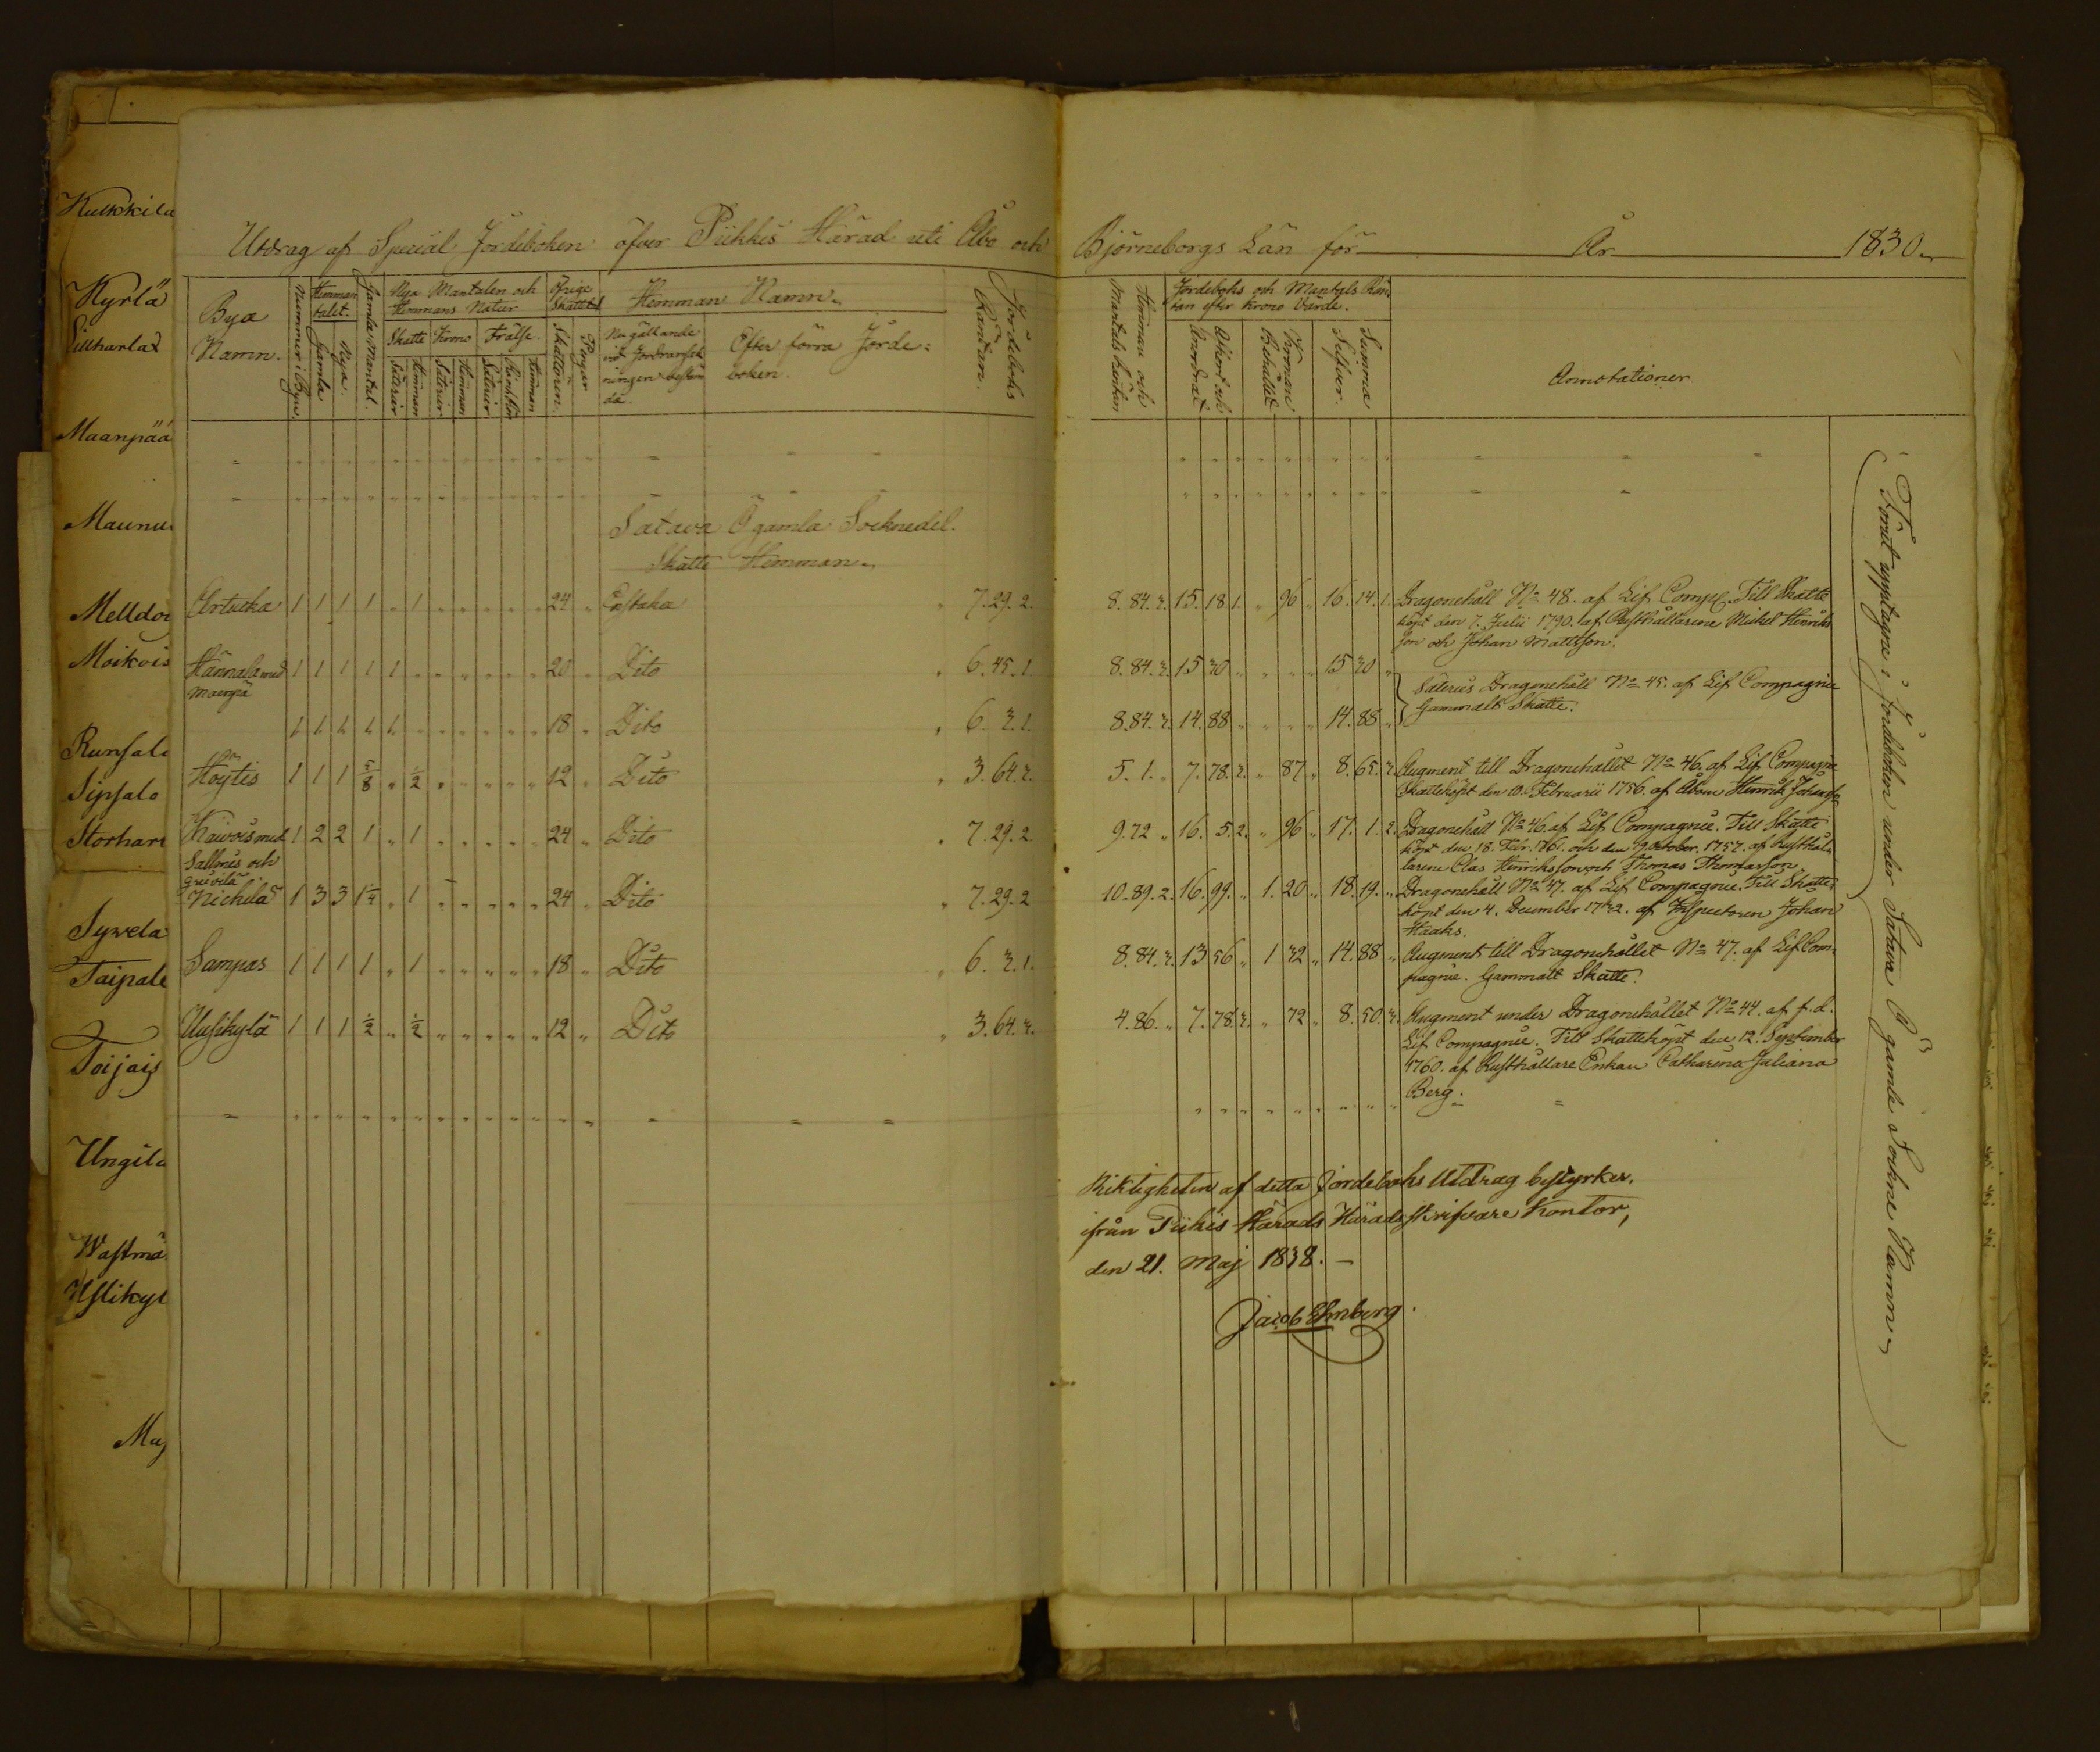 Kuskkila
Kyrlä
Lillharlax
Maanpää
Maunu
Melldo
Moikois
Runsala
Sipsalo
Storhar
Sywela
Taipale
Toijais
Ungila
Wastmä
Yllikyl
Utdrag af Special Jordeboken öfver Piikkis Härad uti Åbo och Björneborgs Län för År 1830.
Bya Namn.
Nummer i Byn.
Hemman talet.
Gamla
Nya.
Gamla Mantal.
Nya Mantalen och Hemmans Natur
Skatte Krono Frälse.
Säterier
Hemman
Säterier
Hemman
Säterier
Hemman
Öfrige
Skattören.
Penger
Hemman Namn.
Nu gällande
Efter förra Jorde-
boken.
Jordeboks Räntan.
Hemman och Mantals Räntan
Jordeboks och Mantals Rän-
tan efter krono Värde.
Anordnat
Kronan Behållit
Summa Silfver.
Annotationer
Satava Ö gamla Socknedel.
Skatte Hemman.
Artukka 1 1 1 1 " 1 " " " " " 24 " Enstaka " 7.29.2. 8.84.3. 15.18.1. " 96 " 16.14.1. Dragonehåll No 48. af Lif Comp. Till Skatte
köpt den 7. Julii 1790. af Rusthållarene Mickel Hinriks
son och Johan Mattsson.
Hännälä med 1 1 1 1 1 " " " " " " 20 " Dito " 6.45.1. 8.84.3. 15 30 " " " " 15 30 "
Maenpä
Säteries Dragonehåll No 45. af Lif Compagnie
Gammalt Skatte.
18 " Dito " 6.3.1. 8.84.3. 14.88 " " " " 14.88 "
Höytis 1 1 1 5/8 " 1/2 " " " " " 12 " Dito " 3.64.3. 5.1. " 7.78.3. " 87 " 8.65.3. Augment till Dragonehållet No 46. af Lif Compagnie
Skatteköpt den 10. Februarii 1756. af Åboen Henrik Johansson
Kaivois med 1 2 2 1 " 1 " " " " " 24 " Dito " 7.29.2. 9.72 " 16.5.2. " 96 " 17.1.2. Dragonehåll No 46. af Lif Compagnie. Till Skatte
Sallmis och
köpt den 18. Febr. 1761. och den 9 October. 1757. af Rusthål-
larene Clas Henrichsson och Thomas Thomasson
Nickilä 1 3 3 1 1/4 " 1 " " " " " 24 " Dito " 7.29.2 10.89.2. 16.99. " 1.20 " 18.19. " Dragonehåll No 47. af Lif Compagnie. Till Skatte-
köpt den 4. December 1732. af Inspectoren Johan
Haaks.
Sampas 1 1 1 1 " 1 " " " " " 18 " Dito " 6.3.1. 8.84.3. 13 56 " 1 32 " 14.88 " Augment till Dragonehållet No 47. af Lif Com-
pagnie. Gammalt Skatte.
Uusikylä 1 1 1 1/2 " 1/2 " " " " " 12 " Dito " 3.64.3. 4.86. " 7.78.3. " 72 " 8.50.3. Augment under Dragonehållet No 44. af f.d.
Lif Compagnie. Till Skatteköpt den 12. September
1760. af Rusthållare Enkan Catharina Juliana
Berg.
Förut upptagne i Jordeboken under Satava Ö gamle Sockne Namn.
Riktigheten af detta Jordeboks Utdrag bestyrker.
ifrån Piikis Härads Häradsskrifvare Kontor,
den 21. Maj 1838.
Jacob Ehnberg.